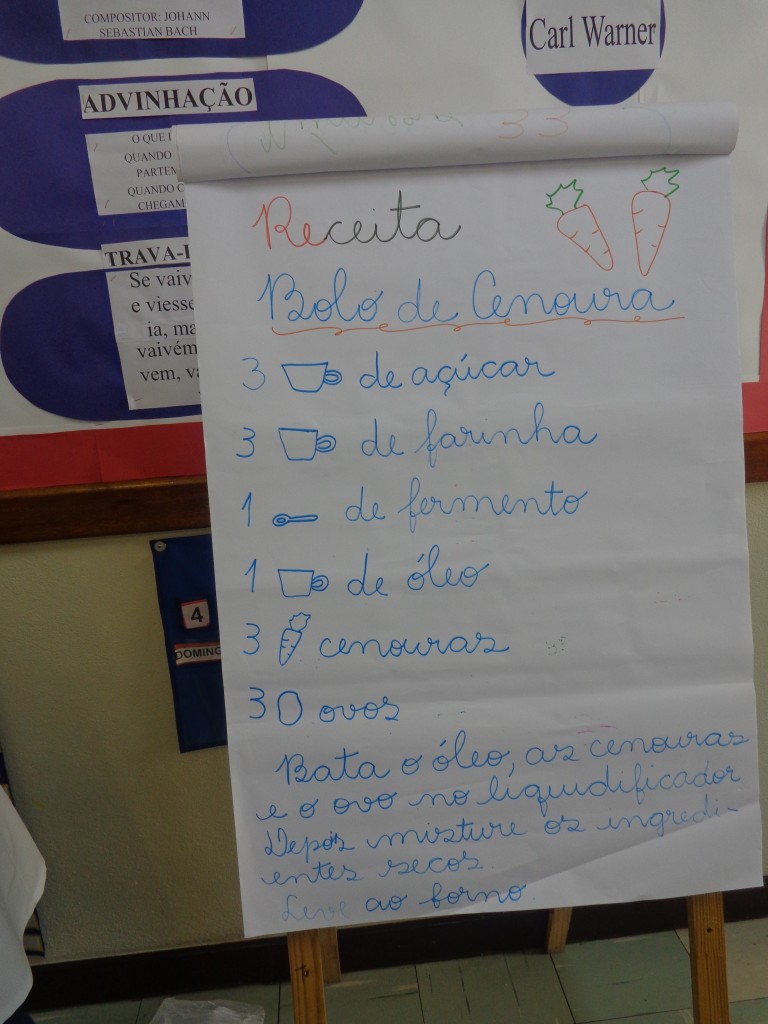 COMPOSITOR: JOHANN
SEBASTIAN BACH
Carl Warner
ADVINHAÇÃO
O QUE
QUANDO
PARTEM
QUANDO
CHEGAM
TRAVA-
Se vaiv
e viesse
ia, ma
vaivém
vem, va
4
DOMING
33
Receita
Bolo de Cenoura
3 de açúcar
3 de farinha
1 de fermento
1 de óleo
3 cenouras
3 ovos
Bata o óleo, as cenouras
e o ovo no liquidificador
Depois misture os ingredi-
entes secos
Leve ao forno